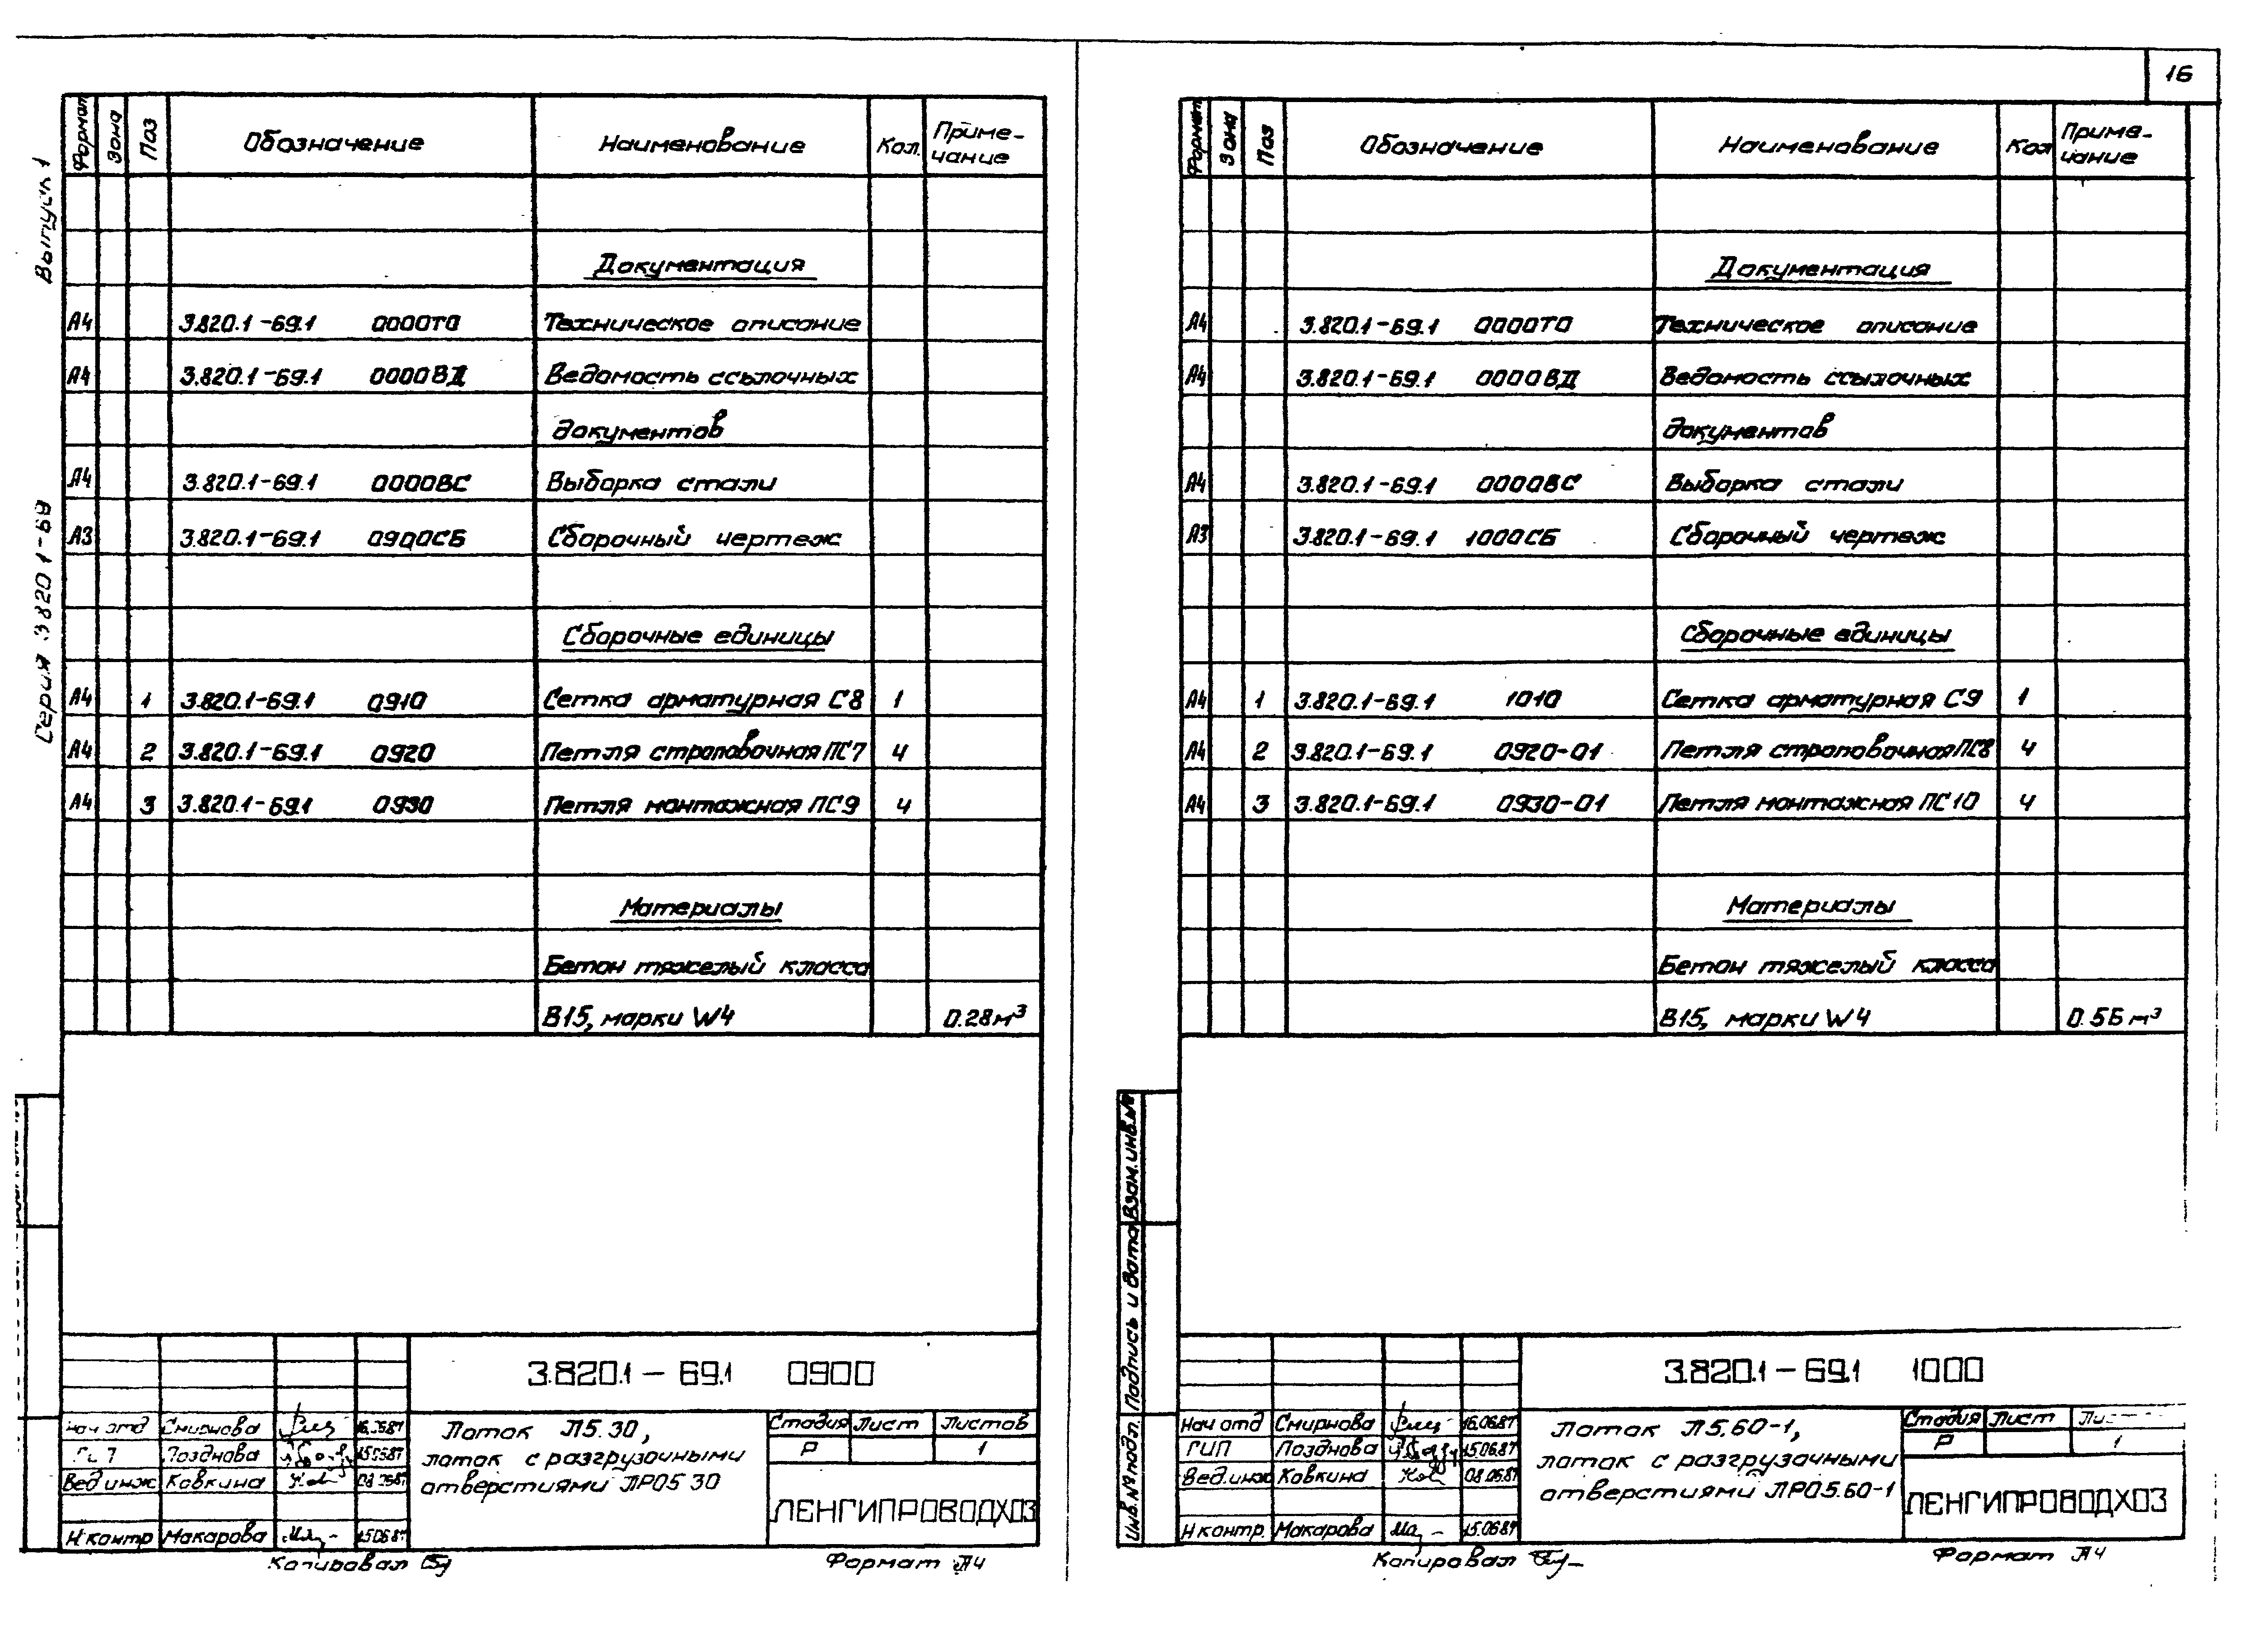 16
Выпуск 1
Серия 3.820.1-69
Формат Зона Поз Обозначение Наименование Кол. Приме-чание
Документация
А4 3.820.1-69.1 0000ТО Техническое описание
А4 3.820.1-69.1 0000ВД Ведомость ссылочных
документов
А4 3.820.1-69.1 0000ВС Выборка стали
А3 3.820.1-69.1 0900СБ Сборочный чертеж
Сборочные единицы
А4 1 3.820.1-69.1 0910 Сетка арматурная С8 1
А4 2 3.820.1-69.1 0920 Петля строповочная ПС7 4
А4 3 3.820.1-69.1 0930 Петля монтажная ПС9 4
Материалы
Бетон тяжелый класса
В15, марки W4 0.28м³
3.820.1-69.1 0900
Нач отд Смирнова 16.06.87
ГИП Позднова 15.06.87
Вед инж Ковкина 08.06.87
Н контр Макарова 15.06.87
Лоток Л5.30,
лоток с разгрузочными
отверстиями ЛРО5 30
Стадия Лист Листов
Р 1
ЛЕНГИПРОВОДХОЗ
Копировал
Формат А4
Формат Зона Поз Обозначение Наименование Кол Приме-чание
Документация
А4 3.820.1-69.1 0000ТО Техническое описание
А4 3.820.1-69.1 0000ВД Ведомость ссылочных
документов
А4 3.820.1-69.1 0000ВС Выборка стали
А3 3.820.1-69.1 1000СБ Сборочный чертеж
Сборочные единицы
А4 1 3.820.1-69.1 1010 Сетка арматурная С9 1
А4 2 3.820.1-69.1 0920-01 Петля строповочная ПС8 4
А4 3 3.820.1-69.1 0930-01 Петля монтажная ПС10 4
Материалы
Бетон тяжелый класса
В15, марки W4 0.56 м³
Взам.инв.№
Подпись и дата
Инв.№ подл.
3.820.1-69.1 1000
Нач отд Смирнова 16.06.87
ГИП Позднова 15.06.87
Вед.инж Ковкина 08.06.87
Н контр. Макарова 15.06.87
Лоток Л5.60-1,
лоток с разгрузочными
отверстиями ЛРО5.60-1
Стадия Лист
Р 1
ЛЕНГИПРОВОДХОЗ
Копировал
Формат А4